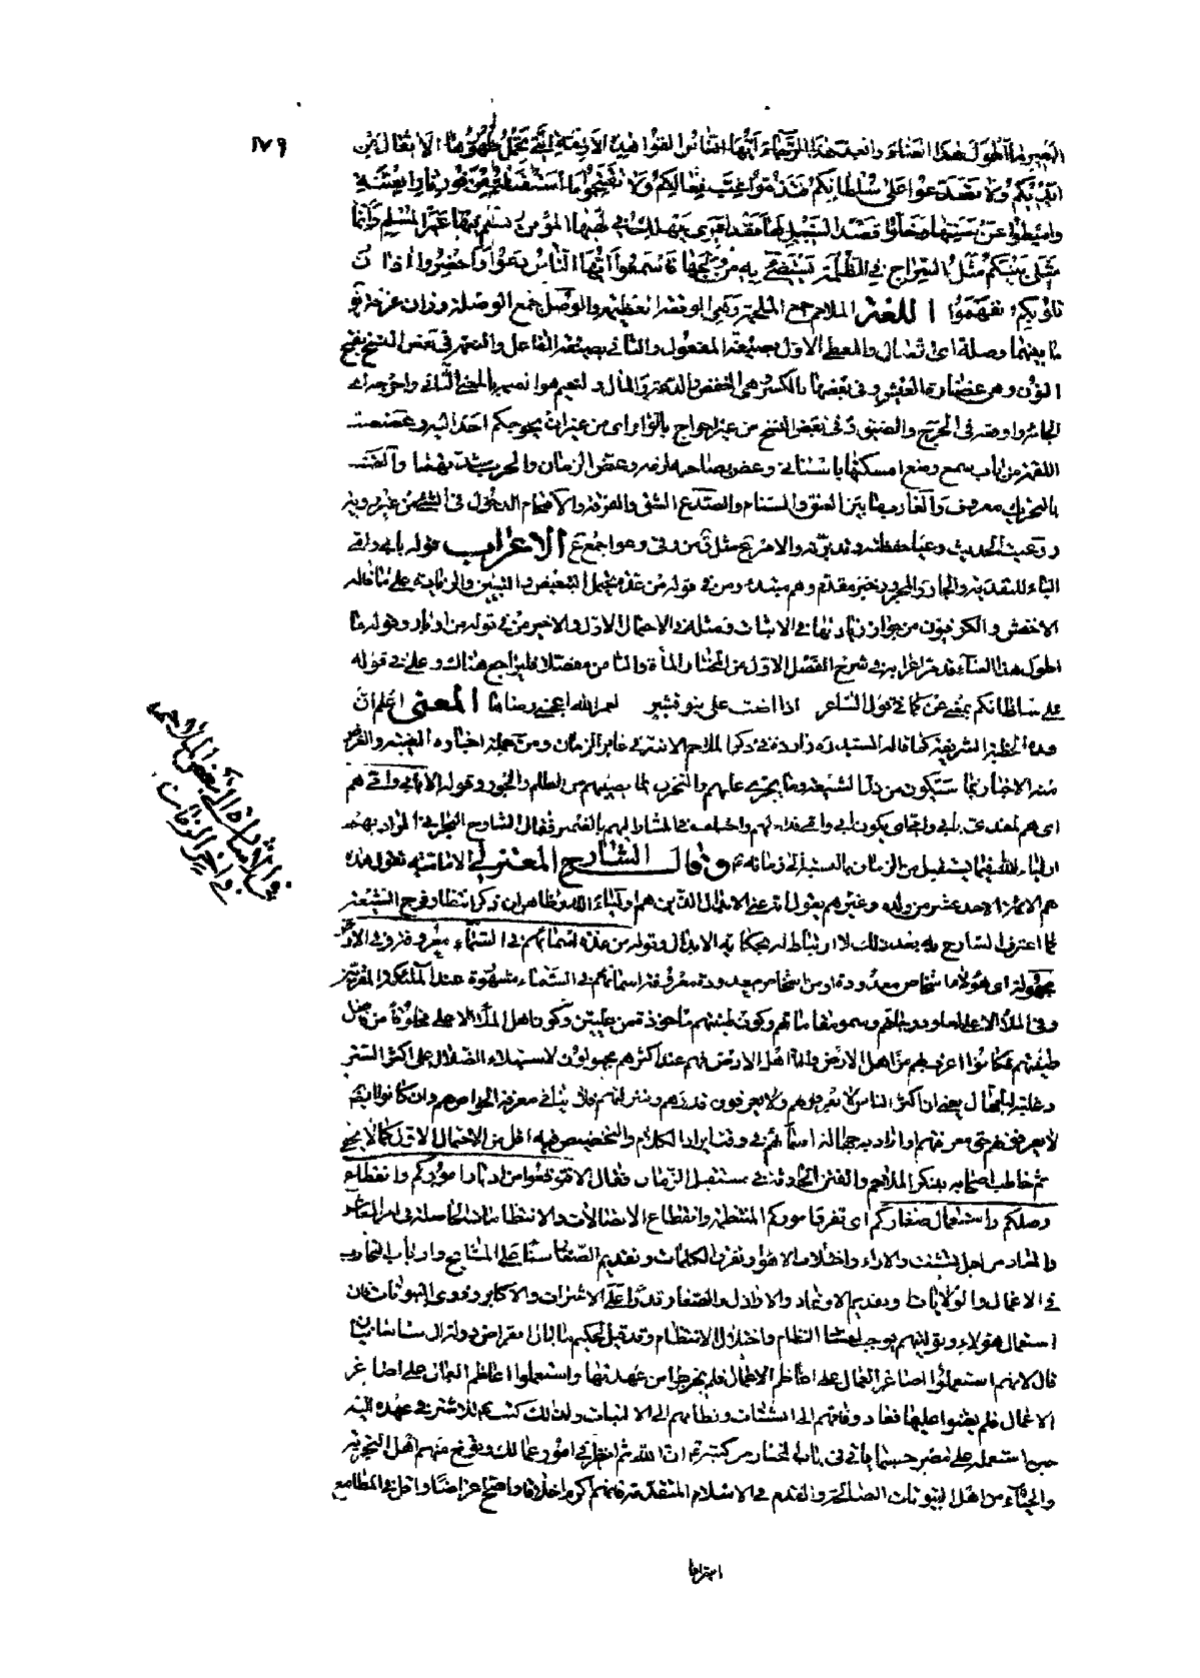 ١٧٩
البعير ما أطول هذا العناء وابعد هذا الرجاء أيها الناس القوا هذه الأزمة التي تحمل ظهورها الأثقال من
أيديكم ولا تصدعوا على سلطانكم فتذموا غب فعالكم ولا تقتحموا ما استقبلتم من فور نار الفتنة
وأميطوا عن سننها وخلوا قصد السبيل لها فقد لعمري يهلك في لهبها المؤمن ويسلم فيها غير المسلم وإنما
مثلي بينكم مثل السراج في الظلمة يستضيء به من ولجها فاسمعوا أيها الناس وعوا وأحضروا آذان
قلوبكم تفهموا اللغة الملاحم جمع الملحمة وهي الوقعة العظيمة والوصل جمع الوصلة وزان غرفة
ما بينهما وصلة اى اتصال والمعطى الاول بصيغة المفعول والثاني بصيغة الفاعل والنعمة في بعض النسخ بفتح
النون وهى غضارة العيش وفى بعضها بالكسر وهى الخفض والدعة والمال
في بعض النسخ من غير احواج بالواو اى من غير ان يحوجكم احد اليه وعضضت
اللقمة من باب سمع ومنع امسكتها باسناني وعض بصاحبه لزمه وعض الزمان والحرب شدتهما والقتب
بالتحريك معروف والغارب ما بين العنق والسنام والصدع الشق والفرقة والاقتحام الدخول في الشيء من غير روية
ووعيت الحديث وعيا حفظته وتدبرته والامر ع مثل ق من وقى وعوا جمع ع الاعراب قوله بابي وامي
الباء للتفدية والجار والمجرور خبر مقدم وهم مبتدء ومن في قوله من عدة يحتمل التبعيض والتبيين والزيادة على ما قاله
الاخفش والكوفيون من جواز زيادتها في الاثبات ومثله في الاحتمال الاول والاخير من في قوله من ادبار وقوله ما
اطول هذا العناء قد مر اعرابه في شرح الفصل الاول من المختار المأة والثامن مفصلا فليراجع هناك وعلى في قوله
على سلطانكم بمعنى عن كما في قول الشاعر اذا رضت على بنو قشير لعمر الله اعجبني رضاها المعنى اعلم ان
هذه الخطبة الشريفة كما قاله السيد ره واردة في ذكر الملاحم الاتية في غابر الزمان ومن جملة اخباره الغيبية والغرض
منه الاخبار بما سيكون من ذل الشيعة وما يجرى عليهم
اى هم
وقال الشارح المعتزلي الامامية تقول هذه
هم الائمة الاحد عشر من ولده وغيرهم يقول انه عنى الابدال الذين هم اولياء الله
لما اعترف الشارح به بعد ذلك لا ارتباط له بحكاية الابدال وقوله من عدة اسمائهم في السماء معروفة وفي الارض
مجهولة اى هؤلاء اشخاص معدودة او من اشخاص معدودة معروفة اسمائهم في السماء مشهورة عند الملئكة المقربين
وفي الملأ الاعلى لعلو درجاتهم وسمو مقاماتهم وكون طينتهم مأخوذة من عليين وكون اهل الملأ الاعلى مخلوقا من فضل
طينتهم فكانوا اعرف بهم من اهل الارض واما اهل الارض فهم عند اكثرهم مجهولون لاستيلاء الضلال على اكثر البشر
وغلبة الجهال يعنى ان اكثر الناس لا يعرفونهم ولا يعرفون قدرهم ومنزلتهم فلا ينافي معرفة الخواص لهم وان كانوا ايضا
لا يعرفونهم حق معرفتهم او اراد به جهالة اسمائهم في وقت ايراد الكلام والتخصيص فيه اقل من الاحتمال الاول كما لا يخفى
ثم خاطب اصحابه بذكر الملاحم والفتن الحادثة في مستقبل الزمان فقال الا فتوقعوا من ادبار اموركم وانقطاع
وصلكم واستعمال صغاركم اى تفرق اموركم المنتظمة وانقطاع الاتصالات والانتظامات الحاصلة في امر المعاش
والمعاد من اجل تشتت الاراء واختلاف الاهواء وتفرق الكلمات وتقديم الصغار سنا على المشايخ وارباب التجارب
في الاعمال والولايات وتقديم الاوغاد والاراذل والصغار قدرا على الاشراف والاكابر وذوى البيوتات فان
استعمال هؤلاء وتوليتهم يوجب فساد النظام واختلال الانتظام وقد قيل لحكيم ما بال انقراض دولة ال ساسان
قال لانهم استعملوا اصاغر العمال على اعاظم الاعمال فلم يخرجوا من عهدتها واستعملوا اعاظم العمال على اصاغر
الاعمال فلم يعتنوا عليها فعاد وفاقهم الى الشتات ونظامهم الى البتات ولذلك كتب ع للاشتر في عهده اليه
حين استعمله على مصر حسبما يأتي في باب المختار من كتبه ثم انظر في امور عمالك وتوخ منهم اهل التجربة
والحياء من اهل البيوتات الصالحة والقدم في الاسلام المتقدمة فانهم اكرم اخلاقا واصح اعراضا واقل في المطامع
اشرافا